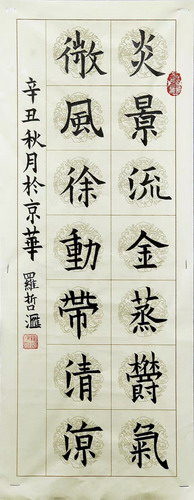 炎景流金蒸欝氣
微風徐動帶清涼
辛丑秋月於京華
羅哲滙